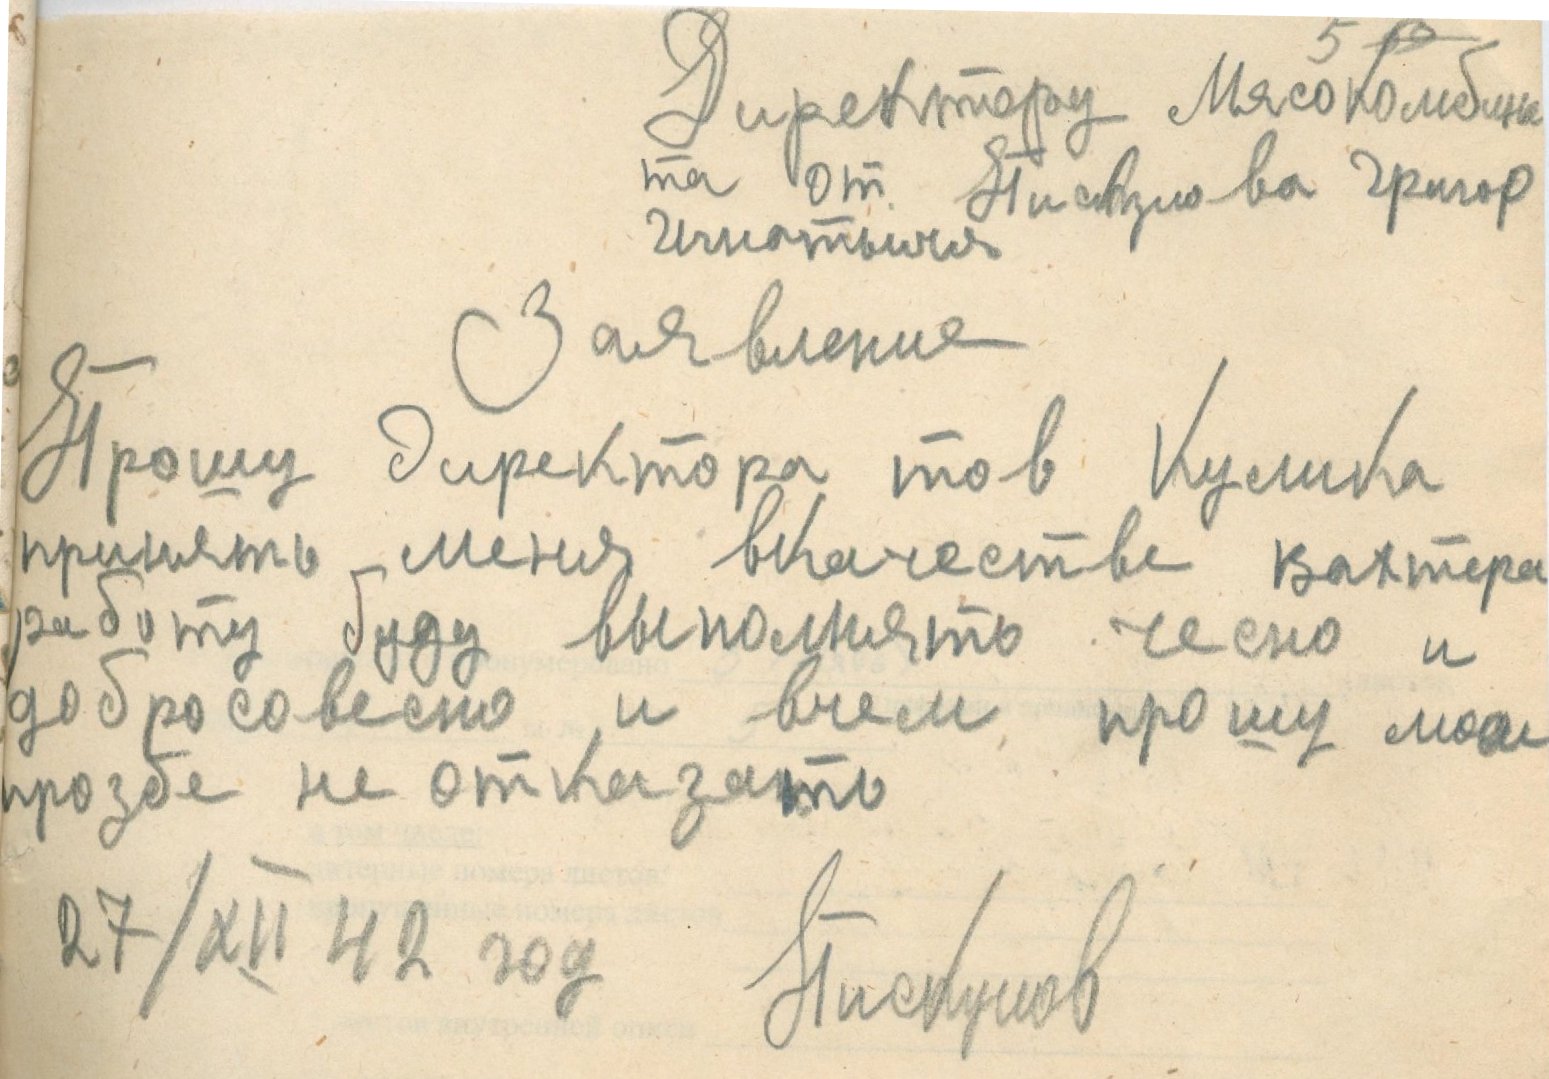 5
Директору Мясокомбина
та от Пискунова Григор
Игнатьича
Заявление
Прошу Директора тов Кулика
принять меня вкачестве вахтера
работу буду выполнять чесно и
добросовесно и вчем прошу моеи
прозбе не отказать
27/XII 42 год Пискунов